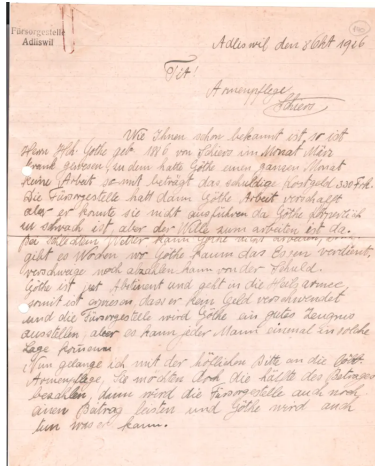 Fürsorgestelle
Adliswil
Adliswil den 8 Okt 1926
Tit!
Armenpflege
Schiers
Wie Ihnen schon bekannt ist, so ist
Herrn Hch. Göthe geb. 1896 von Schiers im Monat März
krank gewesen, in dem hatte Göthe einen ganzen Monat
keine Arbeit somit beträgt das schuldige Kostgeld 330 Frk.
Die Fürsorgestelle hatt dann Göthe Arbeit verschafft
aber er konnte sie nicht ausführen da Göthe körperlich
zu schwach ist, aber der Wille zum arbeiten ist da.
Göthe nicht arbeiten, er
gibt es Wochen wo Göthe kaum das Essen verdient,
verschwege noch abzahlen kann von der Schuld.
Göthe ist jet Abstinent und geht in die Heilsarmee,
somit ist erwiesen dass er kein Geld verschwendet
und die Fürsorgestelle wird Göthe ein gutes Zeugnis
ausstellen, aber es kann jeder Mann einemal in solche
Lage kommen.
Nun gelange ich mit der höflichen Bitte an die
Armenpflege, Sie möchten doch die hälfte des Betrages
bezahlen, dann wird die Fürsorgestelle auch noch
einen Beitrag leisten und Göthe wird auch
tun was er kann.